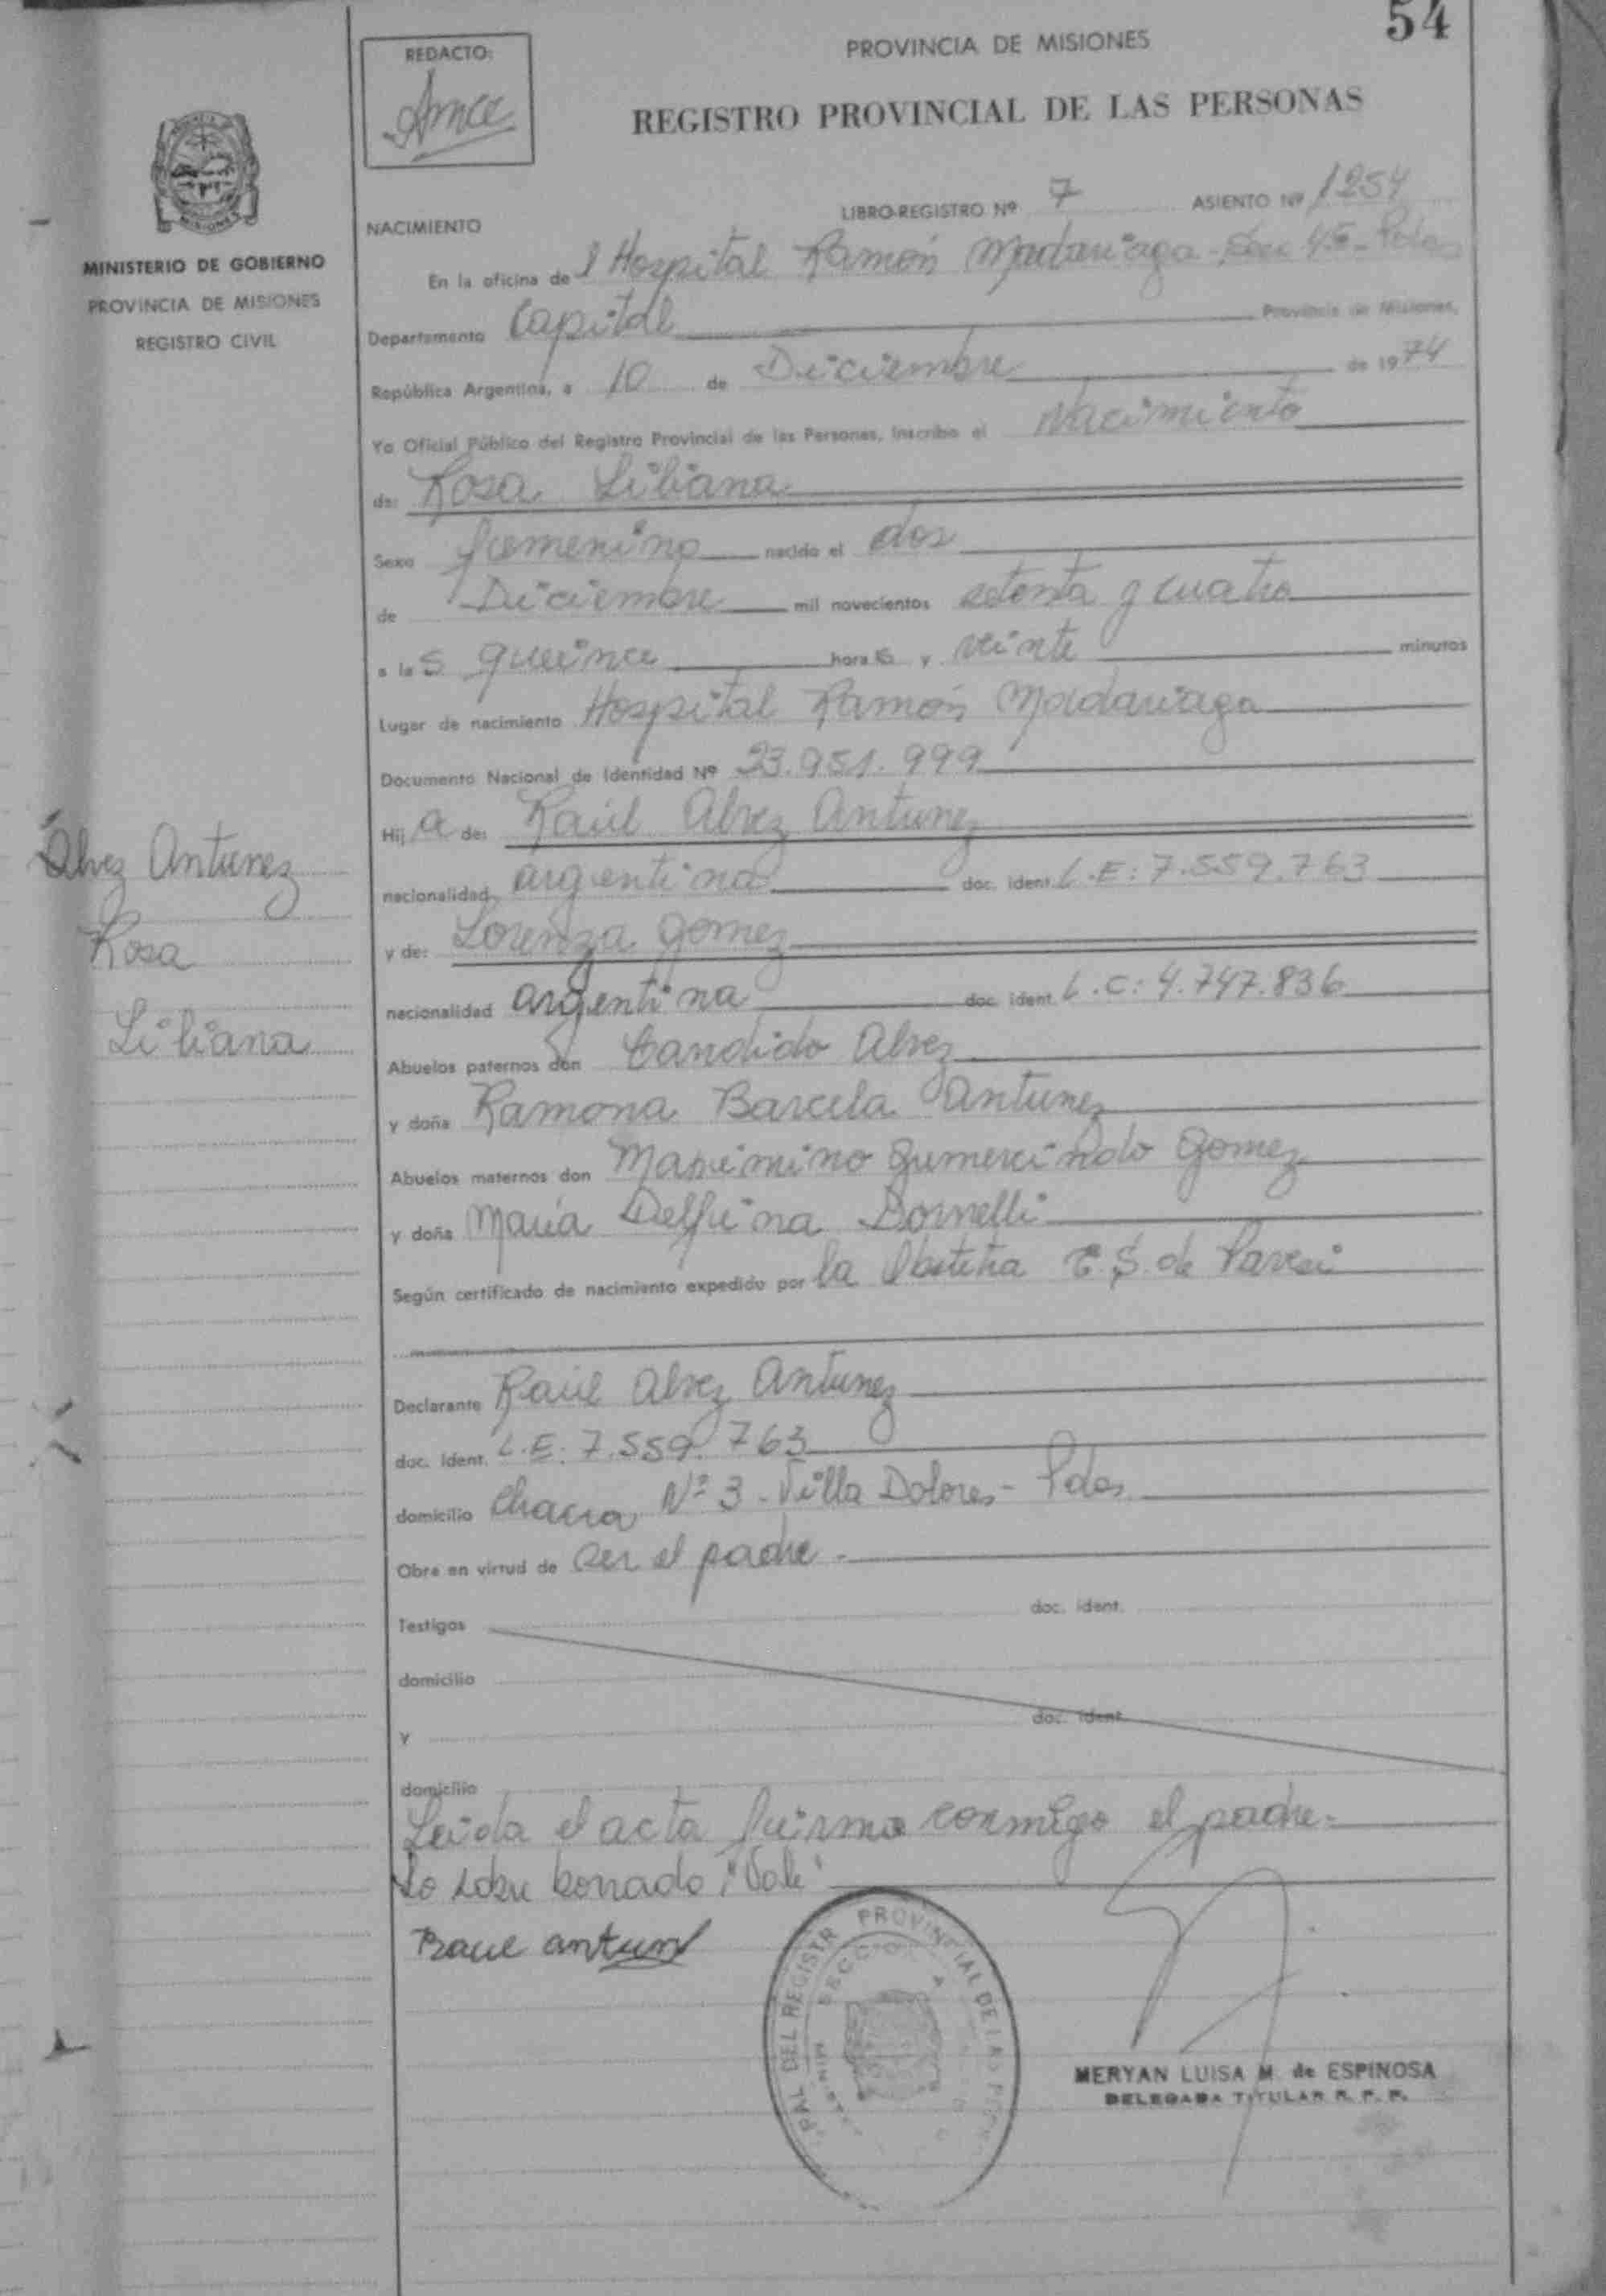 54
REDACTO:
PROVINCIA DE MISIONES
REGISTRO PROVINCIAL DE LAS PERSONAS
MINISTERIO DE GOBIERNO
PROVINCIA DE MISIONES
REGISTRO CIVIL
LIBRO-REGISTRO Nº 7 ASIENTO Nº 1254
NACIMIENTO
En la oficina de l Hospital Ramón Madariaga - Pdas
Departamento Capital Provincia de Misiones,
República Argentina, a 10 de Diciembre de 1974
Yo Oficial Público del Registro Provincial de las Personas, inscribo el Nacimiento
de: Rosa Liliana
Sexo femenino nacido el dos
de Diciembre mil novecientos setenta y cuatro
a las quince horas y veinte minutos
Lugar de nacimiento Hospital Ramón Madariaga
Documento Nacional de Identidad Nº 23.951.999
Hija de: Raúl Alvez Antunez
nacionalidad argentina doc. ident. L.E: 7.559.763
y de: Lorenza Gomez
nacionalidad argentina doc. ident. L.C: 4.747.836
Abuelos paternos don Candido Alvez
y doña Ramona Barcela Antunez
Abuelos maternos don Maximino Gumercindo Gomez
y doña María Delfina Dornelli
Según certificado de nacimiento expedido por la Obstetra E.S. de
Declarante Raúl Alvez Antunez
doc. Ident. L.E: 7.559.763
domicilio Chacra Nº 3 - Villa Dolores - Pdas
Obra en virtud de ser el padre -
Testigos doc. ident.
domicilio
Y doc. ident.
domicilio
Leida el acta firma conmigo el padre -
Lo sobre borrado "Vale"
Alvez Antunez
Rosa
Liliana
MERYAN LUISA M. de ESPINOSA
DELEGADA TITULAR R. P. P.